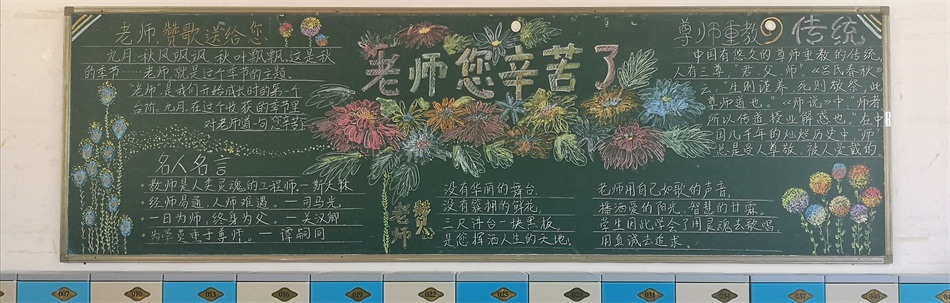 老师赞歌送给您
九月,秋风飒飒,秋叶飘飘,这是秋
的季节……老师,就是这个季节的主题.
"老师"是我们开始成长时的第一个
台阶,九月,在这个收获的季节里
对老师道一句:您辛苦
名人名言
教师是人类灵魂的工程师.—斯大林
经师易遇,人师难遇。—司马光
一日为师,终身为父。—关汉卿
为学莫重于尊师。—谭嗣同
老师您辛苦了
老师
没有华丽的舞台,
没有簇拥的鲜花,
三尺讲台一块黑板,
是您挥洒人生的天地,
老师用自己如歌的声音,
播洒爱的阳光,智慧的甘霖。
学生因此学会了用灵魂去歌唱,
用真诚去追求.
尊师重教 传统
中国有悠久的尊师重教的传统,
人有三尊,"君,父,师",《吕氏春秋》
云:"生则谨养,死则敬祭,此
尊师道也。"《师说》中,"师者
所以传道授业解惑也"在中
国几千年的灿烂历史中,"师"
总是受人尊敬,被人爱戴的
007
010
013
016
019
022
023
028
031
034
037